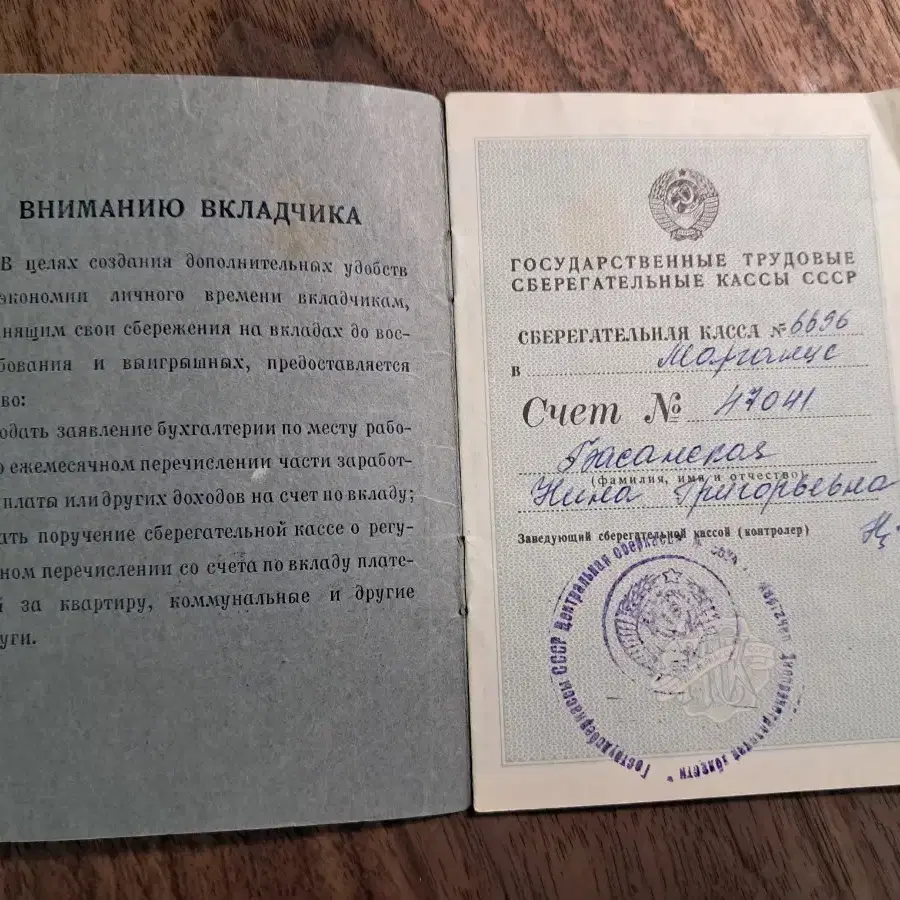 ВНИМАНИЮ ВКЛАДЧИКА
В целях создания дополнительных удобств
экономии личного времени вкладчикам,
нящим свои сбережения на вкладах до вос-
бования и выигрышных, предоставляется
во:
одать заявление бухгалтерии по месту рабо-
о ежемесячном перечислении части заработ-
платы или других доходов на счет по вкладу;
ать поручение сберегательной кассе о регу-
ном перечислении со счета по вкладу плате-
й за квартиру, коммунальные и другие
уги.
ГОСУДАРСТВЕННЫЕ ТРУДОВЫЕ
СБЕРЕГАТЕЛЬНЫЕ КАССЫ СССР
СБЕРЕГАТЕЛЬНАЯ КАССА № 6696
в Марганце
Счет № 47041
Басанская
(фамилия, имя и отчество)
Нина Григорьевна
Заведующий сберегательной кассой (контролер)
Гострудсберкассы СССР Центральная сберкасса Днепропетровская области